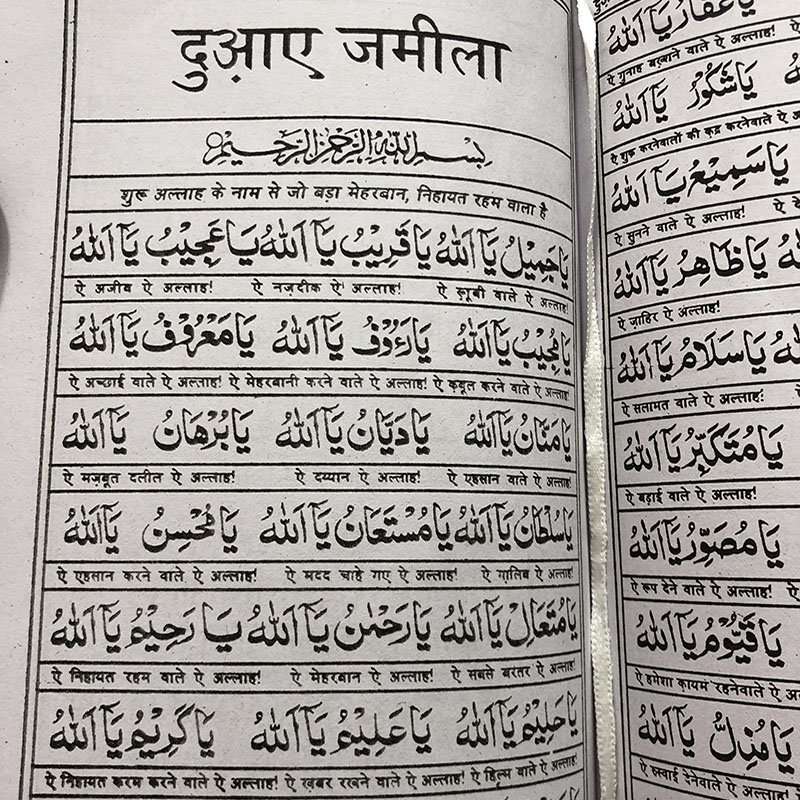 दुआ़ए जमीला
بِسْمِ اللهِ الرَّحْمٰنِ الرَّحِيْمِ
शुरू अल्लाह के नाम से जो बड़ा मेहरबान, निहायत रहम वाला है
يَا جَمِيْلُ يَا اَللهُ يَا قَرِيْبُ يَا اَللهُ يَا عَجِيْبُ يَا اَللهُ
ऐ अजीब ऐ अल्लाह! ऐ नज़दीक ऐ अल्लाह! ऐ ख़ूबी वाले ऐ अल्लाह!
يَا مُجِيْبُ يَا اَللهُ يَا رَءُوْفُ يَا اَللهُ يَا مَعْرُوْفُ يَا اَللهُ
ऐ अच्छाई वाले ऐ अल्लाह! ऐ मेहरबानी करने वाले ऐ अल्लाह! ऐ क़बूल करने वाले ऐ अल्लाह!
يَا مَنَّانُ يَا اَللهُ يَا دَيَّانُ يَا اَللهُ يَا بُرْهَانُ يَا اَللهُ
ऐ मज़बूत दलील ऐ अल्लाह! ऐ दय्यान ऐ अल्लाह! ऐ एहसान वाले ऐ अल्लाह!
يَا سُلْطَانُ يَا اَللهُ يَا مُسْتَعَانُ يَا اَللهُ يَا مُحْسِنُ يَا اَللهُ
ऐ एहसान करने वाले ऐ अल्लाह! ऐ मदद चाहे गए ऐ अल्लाह! ऐ ग़ालिब ऐ अल्लाह!
يَا مُتَعَالِ يَا اَللهُ يَا رَحْمٰنُ يَا اَللهُ يَا رَحِيْمُ يَا اَللهُ
ऐ निहायत रहम वाले ऐ अल्लाह! ऐ मेहरबान ऐ अल्लाह! ऐ सबसे बरतर ऐ अल्लाह!
يَا حَلِيْمُ يَا اَللهُ يَا عَلِيْمُ يَا اَللهُ يَا كَرِيْمُ يَا اَللهُ
ऐ निहायत करम करने वाले ऐ अल्लाह! ऐ ख़बर रखने वाले ऐ अल्लाह! ऐ हिल्म वाले ऐ अल्लाह!
يَا غَفَّارُ يَا اَللهُ
ऐ गुनाह बख़्शने वाले ऐ अल्लाह!
يَا شَكُوْرُ يَا اَللهُ
ऐ शुक्र करनेवालों की क़द्र करनेवाले ऐ
يَا سَمِيْعُ يَا اَللهُ
ऐ सुनने वाले ऐ अल्लाह!
يَا ظَاهِرُ يَا اَللهُ
ऐ ज़ाहिर ऐ अल्लाह!
يَا سَلَامُ يَا اَللهُ
ऐ सलामत वाले ऐ अल्लाह!
يَا مُتَكَبِّرُ يَا اَللهُ
ऐ बड़ाई वाले ऐ अल्लाह!
يَا مُصَوِّرُ يَا اَللهُ
ऐ रूप देने वाले ऐ अल्लाह!
يَا قَيُّوْمُ يَا اَللهُ
ऐ हमेशा क़ायम रहनेवाले ऐ
يَا مُذِلُّ يَا اَللهُ
ऐ रुस्वाई देनेवाले ऐ अल्लाह!